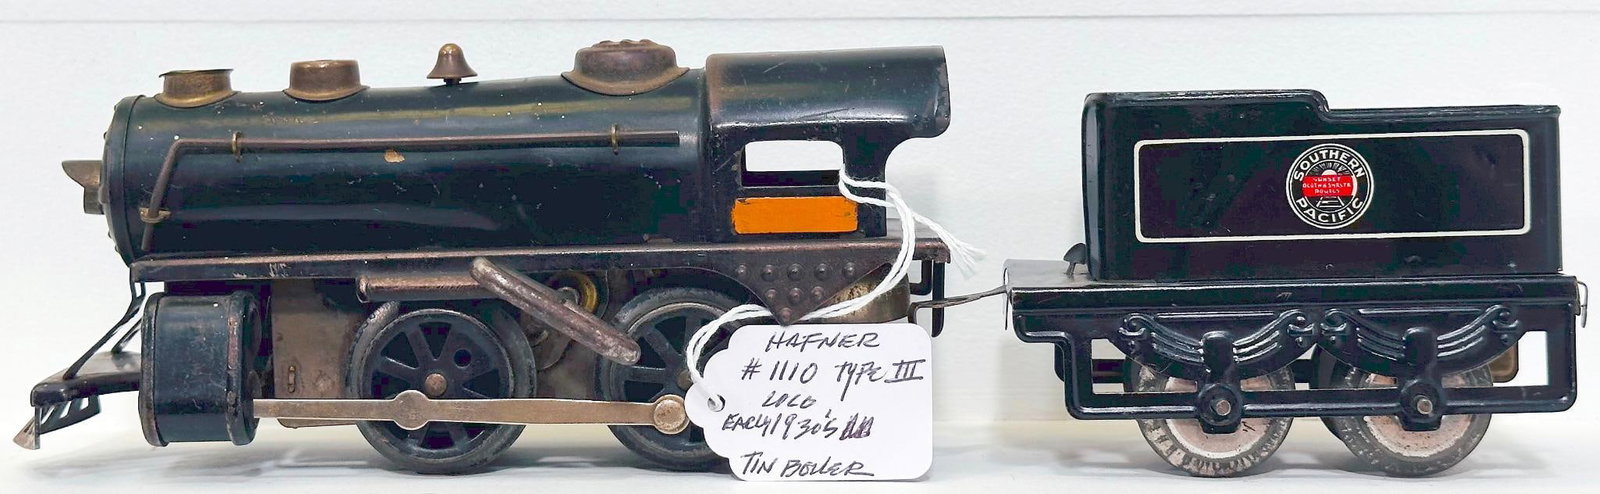 HAFNER
# 1110 TYPE III
LOCO
EARLY 1930'S
TIN BOILER
SOUTHERN
SUNSET
ROUTES
PACIFIC